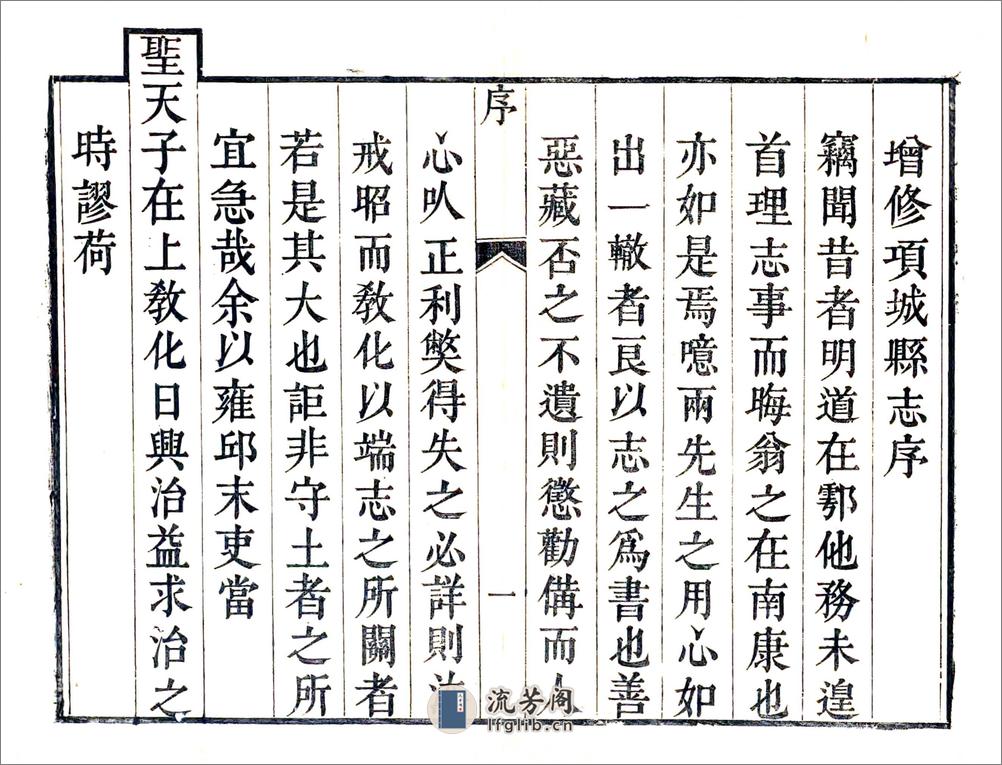 增修項城縣志序
竊聞昔者明道在鄠他務未遑
首理志事而晦翁之在南康也
亦如是焉噫兩先生之用心如
出一轍者良以志之爲書也善
惡藏否之不遺則懲勸備而人
序
一
心以正利獘得失之必詳則法
戒昭而敎化以端志之所關者
若是其大也詎非守土者之所
宜急哉余以雍邱末吏當
聖天子在上敎化日興治益求治之
時謬荷
流芳阁
lfglib.cn